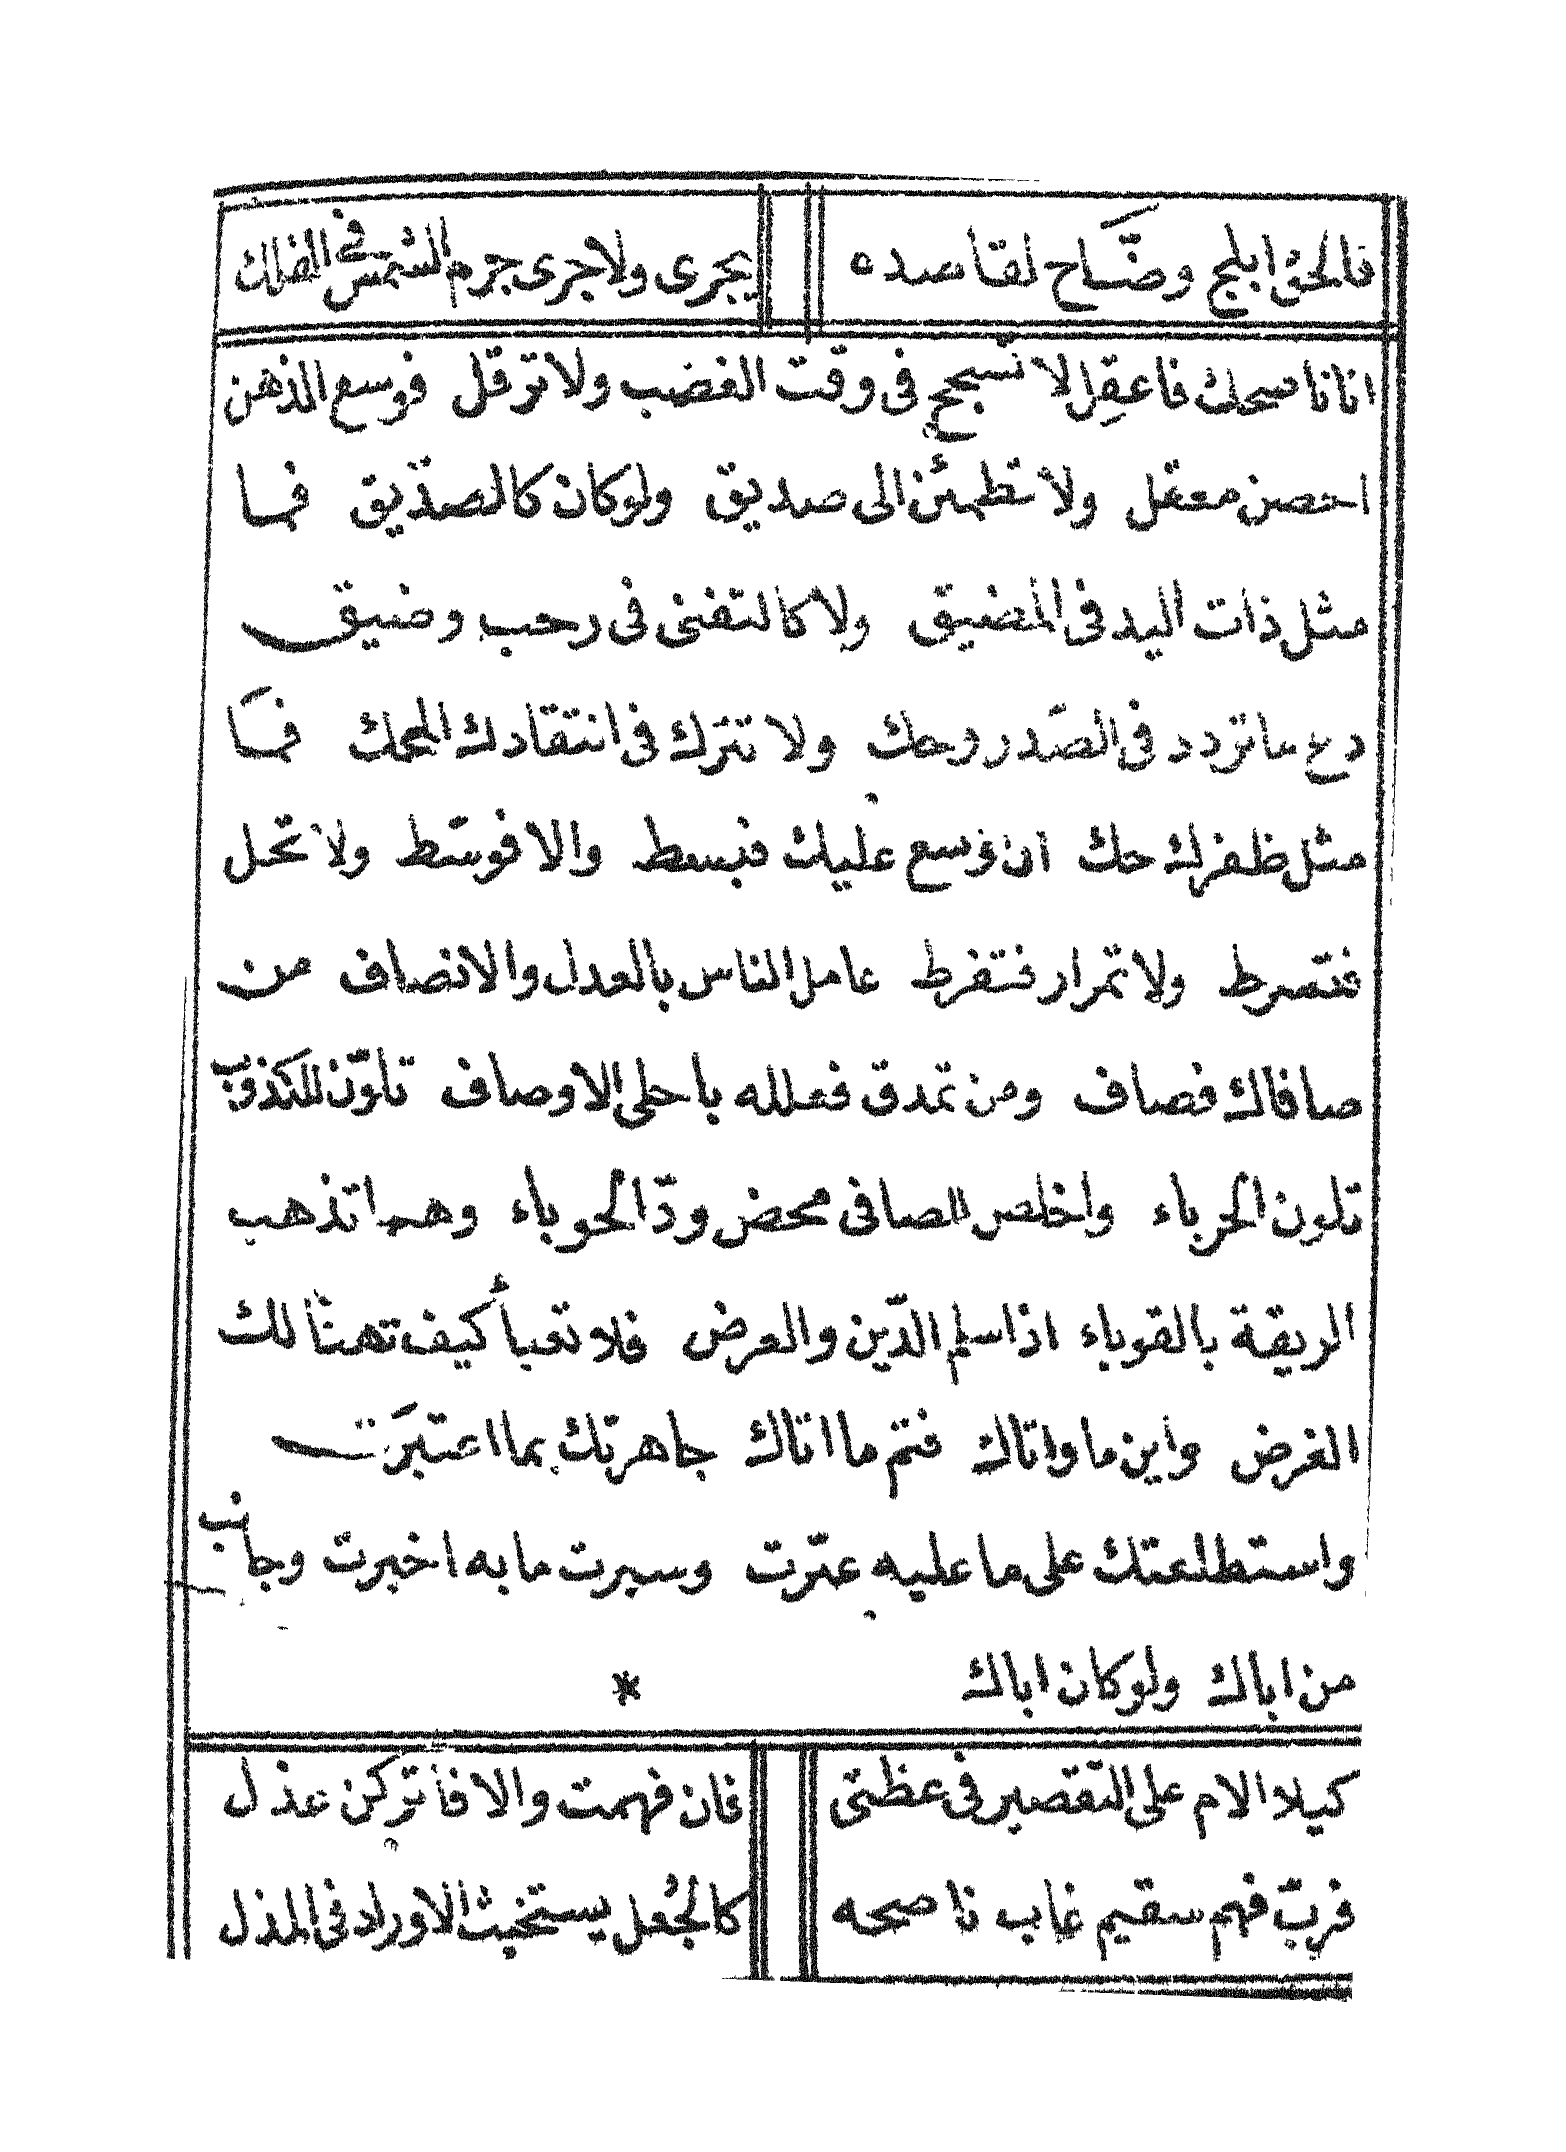 فالحق ابلج وضّاح لقاصده يجرى ولا جرى جرم الشمس فى الفلك
انا ناصحك فاعقل لا تسبح فى وقت الغضب ولا ترقل فوسع الذهن
احصن معقل ولا تطمئن الى صديق ولو كان كالصدّيق فما
مثل ذات اليد فى المضيق ولا كالتفنى فى رحب وضيق
دع ما تردد فى الصّدر وحك ولا تترك فى انتقادك المحك فمّا
مثل ظفرك حك ان وسع عليك فبسط والا فوسّط ولا تحل
فتسرط ولا تمرار فتفرط عامل الناس بالعدل والانصاف من
صافاك فصاف ومن تمدق فعلله باحلى الاوصاف تلوّن للكذوب
تلون الحرباء واخلص للصافى محض ودّ الحوباء وهم اتذهب
الريقة بالقوباء اذا سلم الدّين والعرض فلا تعبأ كيف تهنا لك
الغرض واين ما واتاك فتم ما اتاك جاهرتك بما اعتبرت
واستطلعتك على ما عليه عثرت وسيرت ما به اخبرت وجانب
من اباك ولو كان اباك *
كيلا الام على التقصير فى عظتى فان فهمت والا فاتركن عذل
فربّ فهم سقيم غاب ناصحه كالجُعل يستخبث الاوراد فى المذل